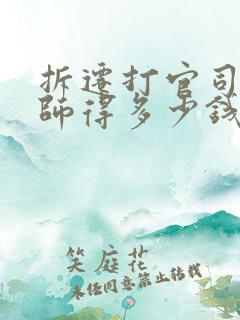 拆迁打官司
师得多少钱
笑庭花
未经同意禁止转载